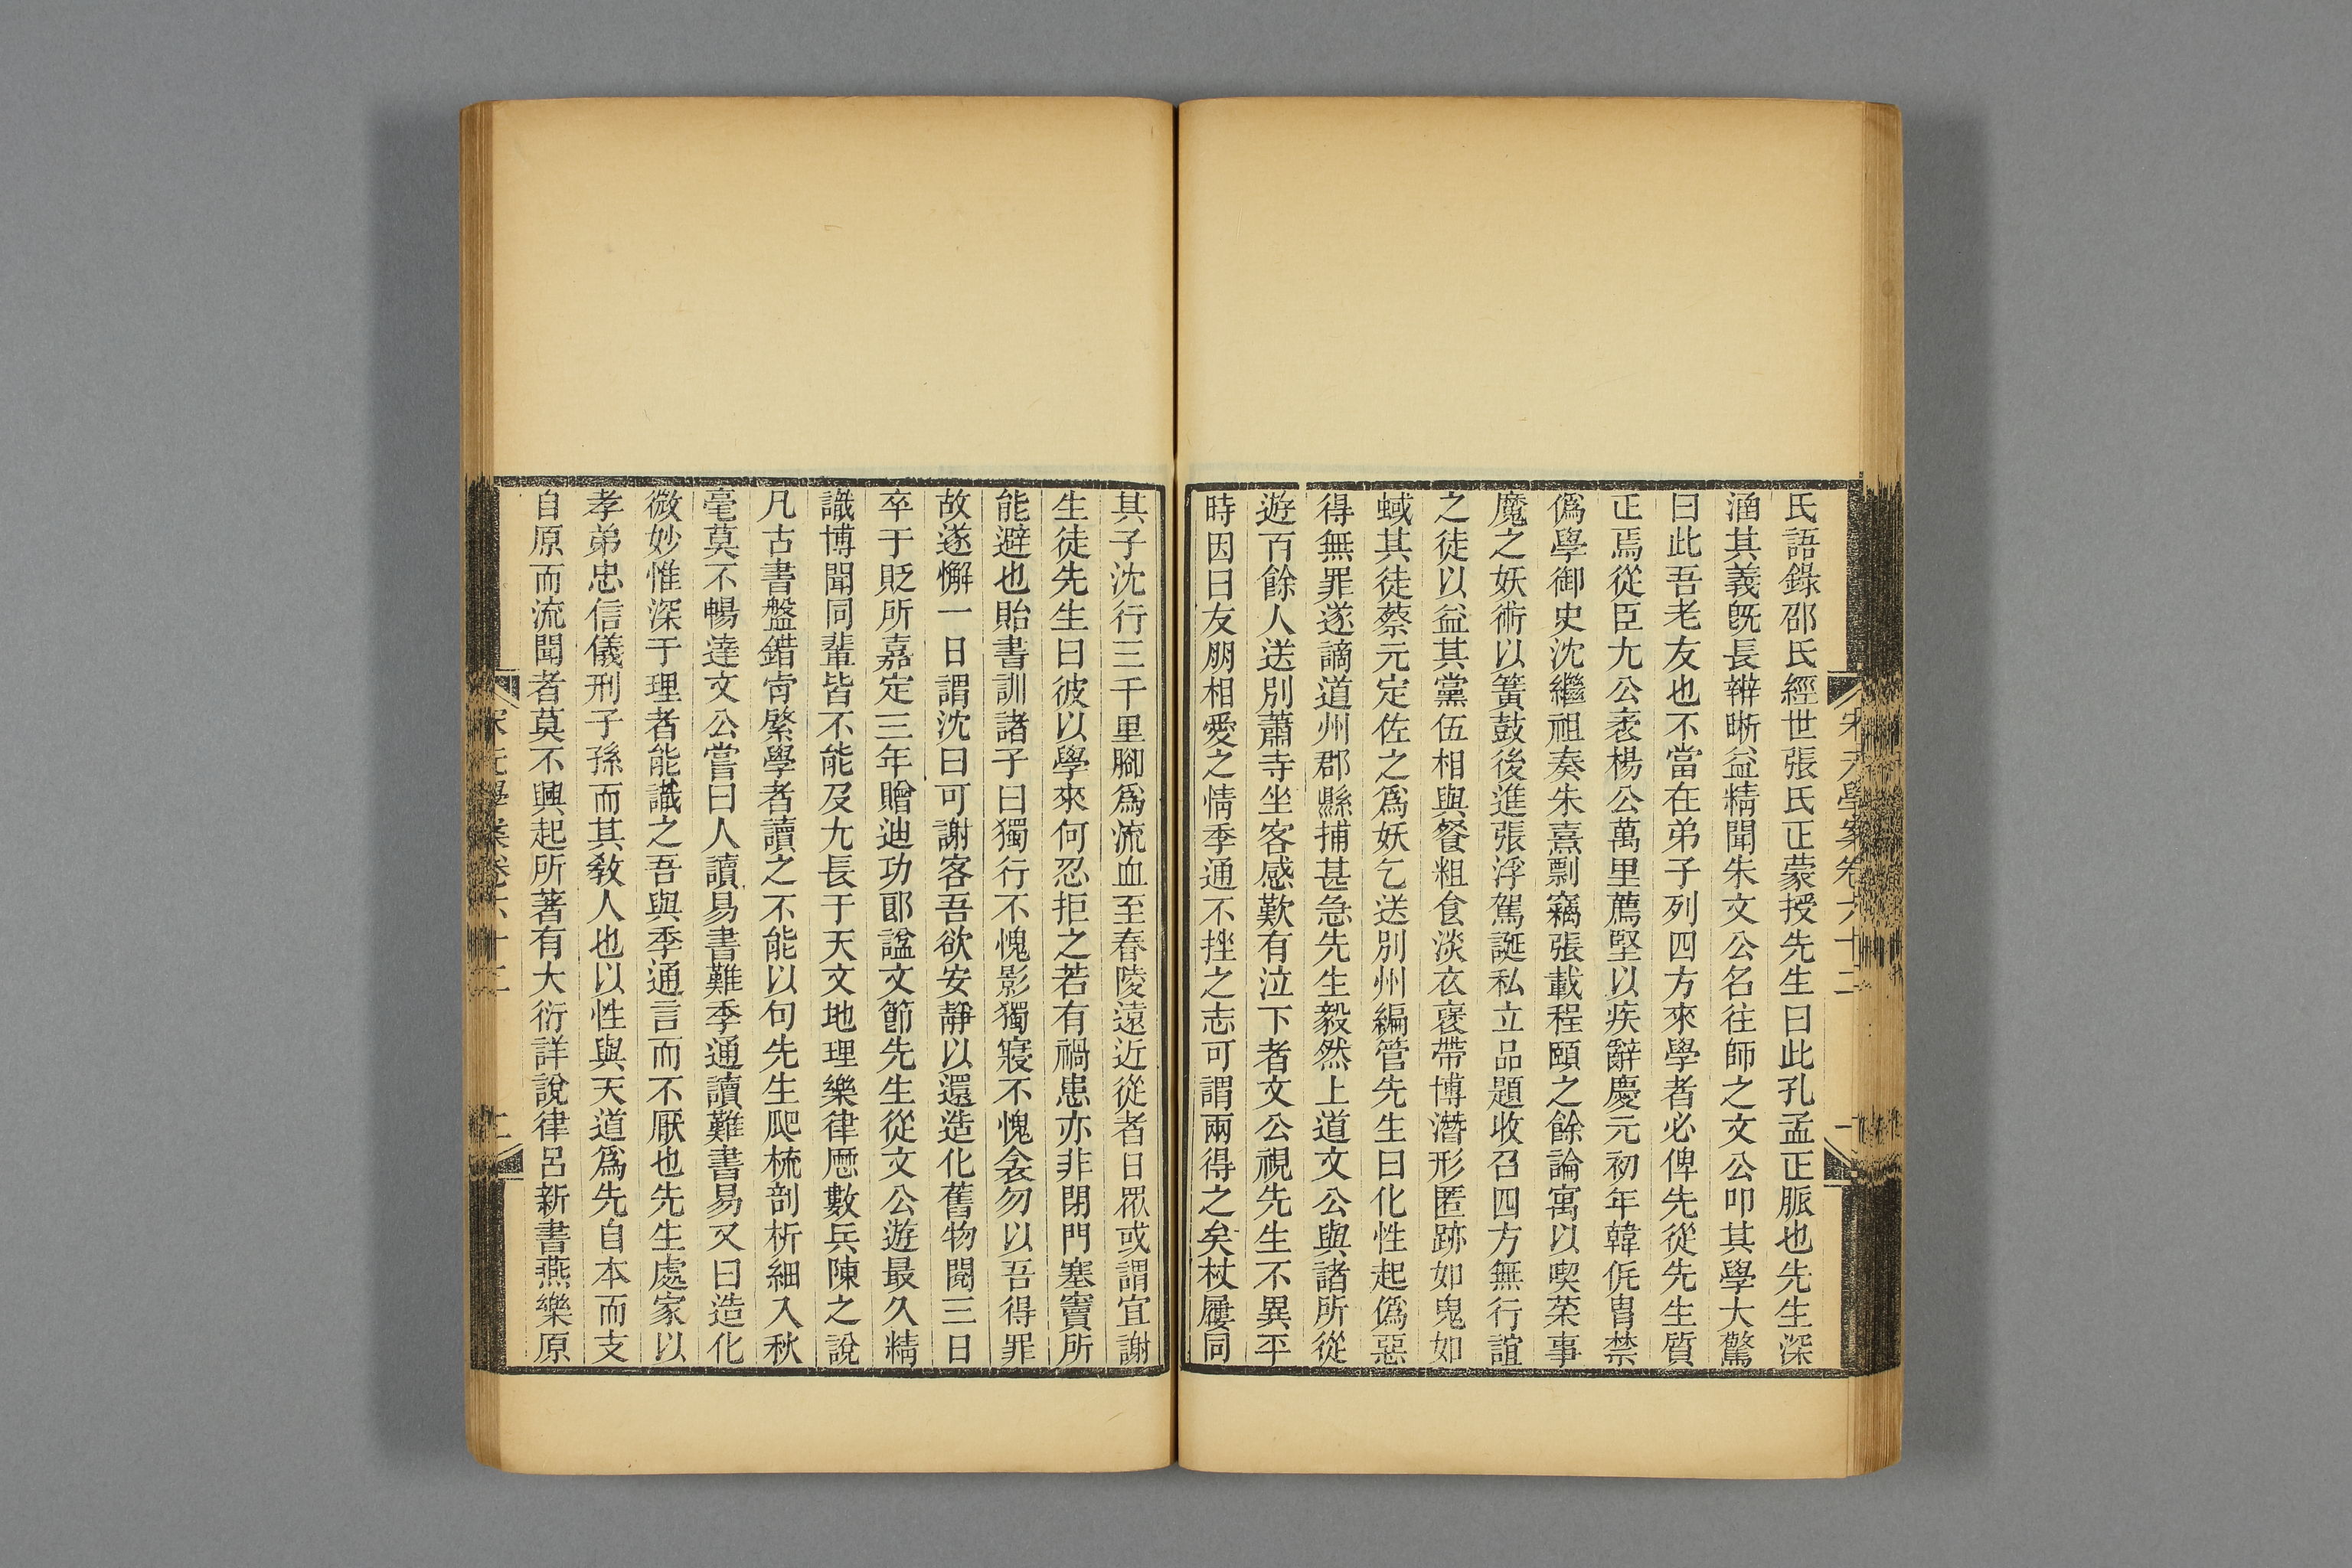 氏語錄邵氏經世張氏正蒙授先生曰此孔孟正脈也先生深
涵其義旣長辨晰益精聞朱文公名往師之文公叩其學大驚
曰此吾老友也不當在弟子列四方來學者必俾先從先生質
正焉從臣尢公袤楊公萬里薦堅以疾辭慶元初年韓侂胄禁
僞學御史沈繼祖奏朱熹剽竊張載程頤之餘論寓以喫菜事
魔之妖術以簧鼓後進張浮駕誕私立品題收召四方無行誼
之徒以益其黨伍相與餐粗食淡衣褒帶博潛形匿跡如鬼如
蜮其徒蔡元定佐之爲妖乞送別州編管先生曰化性起僞惡
得無罪遂謫道州郡縣捕甚急先生毅然上道文公與諸所從
遊百餘人送別蕭寺坐客感歎有泣下者文公視先生不異平
時因曰友朋相愛之情季通不挫之志可謂兩得之矣杖屨同
其子沈行三千里腳爲流血至舂陵遠近從者日眾或謂宜謝
生徒先生曰彼以學來何忍拒之若有禍患亦非閉門塞竇所
能避也貽書訓諸子曰獨行不愧影獨寢不愧衾勿以吾得罪
故遂懈一日謂沈曰可謝客吾欲安靜以還造化舊物閱三日
卒于貶所嘉定三年贈迪功郎諡文節先生從文公遊最久精
識博聞同輩皆不能及尢長于天文地理樂律厯數兵陳之說
凡古書盤錯肯綮學者讀之不能以句先生爬梳剖析細入秋
毫莫不暢達文公嘗曰人讀易書難季通讀難書易又曰造化
微妙惟深于理者能識之吾與季通言而不厭也先生處家以
孝弟忠信儀刑子孫而其敎人也以性與天道爲先自本而支
自原而流聞者莫不興起所著有大衍詳說律呂新書燕樂原
宋元學案卷六十二
二